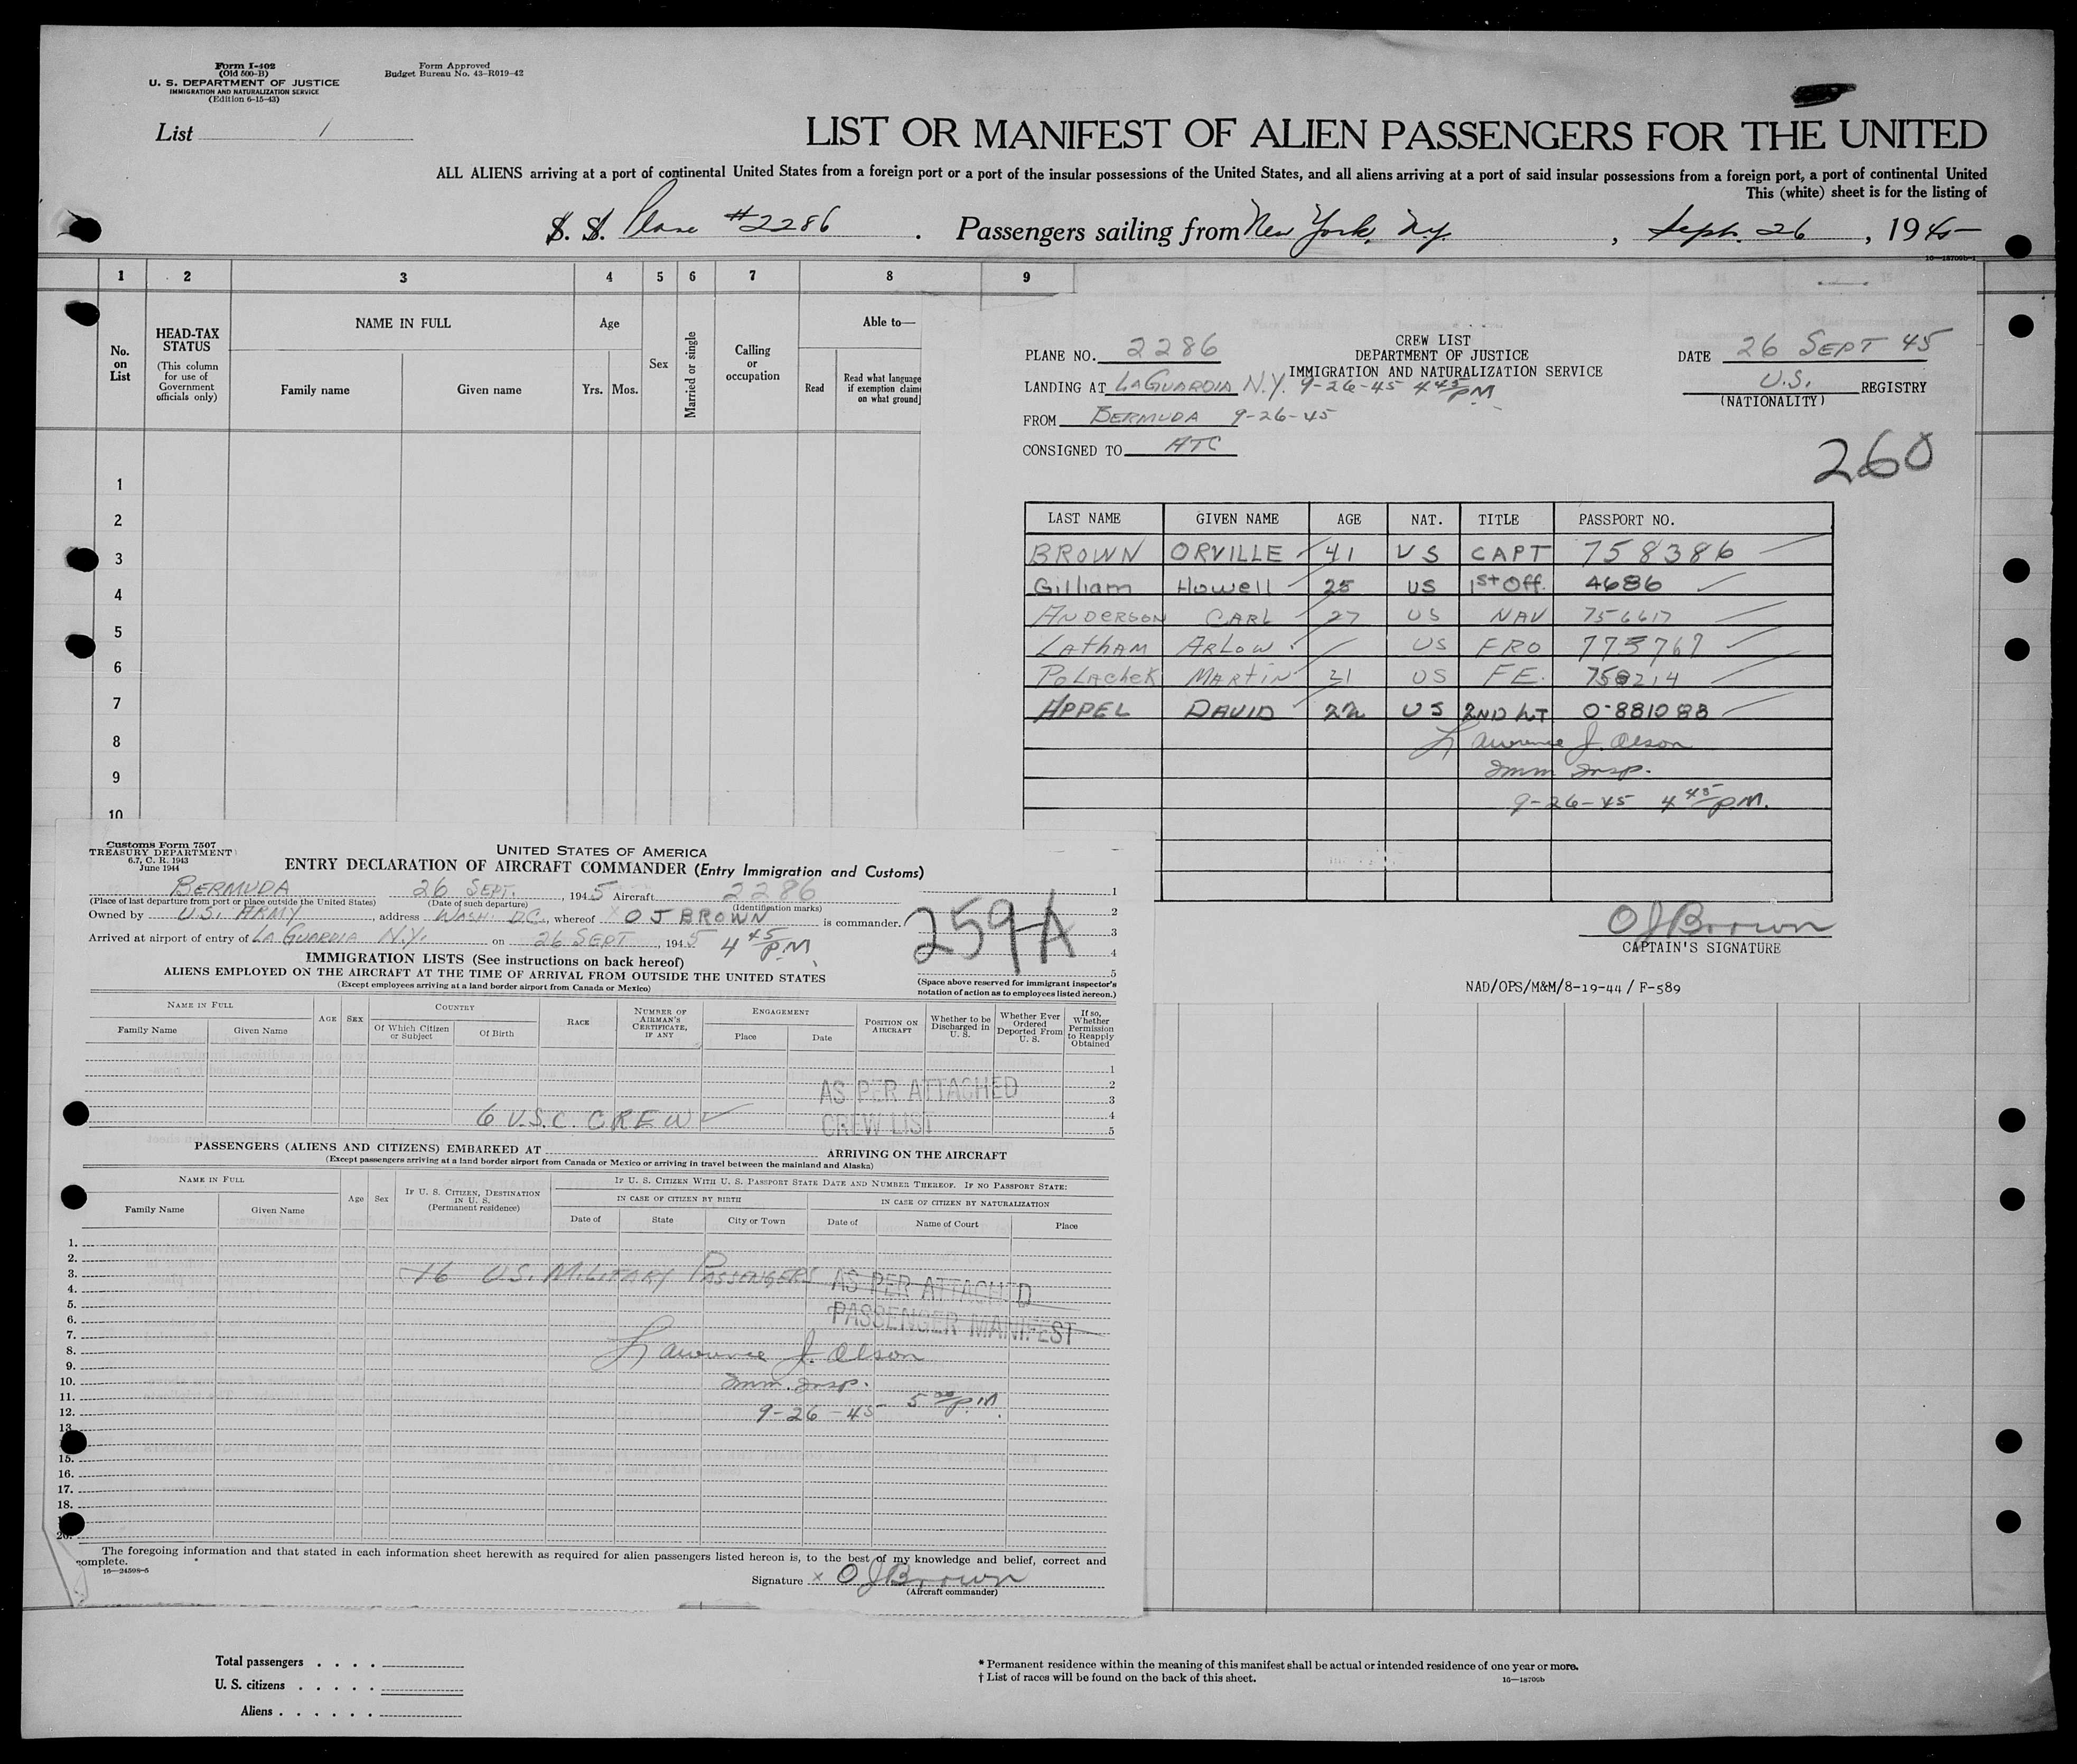 Form I-402
(Old 500-B)
U. S. DEPARTMENT OF JUSTICE
IMMIGRATION AND NATURALIZATION SERVICE
(Edition 6-15-43)
Form Approved
Budget Bureau No. 43-R019-42
List 1
LIST OR MANIFEST OF ALIEN PASSENGERS FOR THE UNITED
ALL ALIENS arriving at a port of continental United States from a foreign port or a port of the insular possessions of the United States, and all aliens arriving at a port of said insular possessions from a foreign port, a port of continental United
This (white) sheet is for the listing of
S. S. Plane #2286 . Passengers sailing from New York, N.Y. , Sept. 26 , 1945
16—18700b-1
1 2 3 4 5 6 7 8 9
No. on List
HEAD-TAX STATUS
(This column for use of Government officials only)
NAME IN FULL
Family name Given name
Age
Yrs. Mos.
Sex
Married or single
Calling or occupation
Able to—
Read
Read what language
if exemption claim
on what ground
1
2
3
4
5
6
7
8
9
10
CREW LIST
DEPARTMENT OF JUSTICE
IMMIGRATION AND NATURALIZATION SERVICE
PLANE NO. 2286
DATE 26 SEPT 45
LANDING AT LAGUARDIA N.Y. 9-26-45 4 45 PM
U.S. REGISTRY
(NATIONALITY)
FROM BERMUDA 9-26-45
CONSIGNED TO ATC
260
LAST NAME GIVEN NAME AGE NAT. TITLE PASSPORT NO.
BROWN ORVILLE 41 US CAPT 758386
Gilliam Howell 25 US 1st Off. 4686
ANDERSON CARL 27 US NAV 756617
LATHAM ARLOW US FRO 773767
POLACHEK MARTIN 31 US FE. 758214
APPEL DAVID 22 US 2ND LT O-881088
Lawrence J. Olson
Imm Insp.
9-26-45 4 45 P.M.
O J Brown
CAPTAIN'S SIGNATURE
NAD/OPS/M&M/8-19-44 / F-589
Customs Form 7507
TREASURY DEPARTMENT
6.7, C. R. 1943
June 1944
UNITED STATES OF AMERICA
ENTRY DECLARATION OF AIRCRAFT COMMANDER (Entry Immigration and Customs)
BERMUDA 26 SEPT. , 1945 Aircraft 2286
(Place of last departure from port or place outside the United States) (Date of such departure) (Identification marks)
Owned by U.S. ARMY , address WASH. D.C., whereof x O J BROWN is commander.
Arrived at airport of entry of LA GUARDIA N.Y. on 26 SEPT , 1945 4 45 P.M
259-A
1
2
3
4
5
(Space above reserved for immigrant inspector's
notation of action as to employees listed hereon.)
IMMIGRATION LISTS (See instructions on back hereof)
ALIENS EMPLOYED ON THE AIRCRAFT AT THE TIME OF ARRIVAL FROM OUTSIDE THE UNITED STATES
(Except employees arriving at a land border airport from Canada or Mexico)
NAME IN FULL
Family Name Given Name
AGE SEX
COUNTRY
Of Which Citizen or Subject Of Birth
RACE
NUMBER OF AIRMAN'S CERTIFICATE, IF ANY
ENGAGEMENT
Place Date
POSITION ON AIRCRAFT
Whether to be Discharged in U. S.
Whether Ever Ordered Deported From U. S.
If so, Whether Permission to Reapply Obtained
1
2
3
4
5
AS PER ATTACHED
CREW LIST
6 U.S.C. CREW
PASSENGERS (ALIENS AND CITIZENS) EMBARKED AT ARRIVING ON THE AIRCRAFT
(Except passengers arriving at a land border airport from Canada or Mexico or arriving in travel between the mainland and Alaska)
NAME IN FULL
Family Name Given Name
Age Sex
IF U. S. CITIZEN, DESTINATION IN U. S.
(Permanent residence)
IF U. S. CITIZEN WITH U. S. PASSPORT STATE DATE AND NUMBER THEREOF. IF NO PASSPORT STATE:
IN CASE OF CITIZEN BY BIRTH IN CASE OF CITIZEN BY NATURALIZATION
Date of State City or Town Date of Name of Court Place
1.
2.
3.
4.
5.
6.
7.
8.
9.
10.
11.
12.
13
15.
16.
17.
18.
20.
16 U.S. MILITARY PASSENGERS
AS PER ATTACHED
PASSENGER MANIFEST
Lawrence J. Olson
Imm. Insp.
9-26-45 5 00 P.M.
The foregoing information and that stated in each information sheet herewith as required for alien passengers listed hereon is, to the best of my knowledge and belief, correct and
complete.
16—24598-5
Signature x O J Brown
(Aircraft commander)
Total passengers . . . .
U. S. citizens . . . . .
Aliens . . . . . .
* Permanent residence within the meaning of this manifest shall be actual or intended residence of one year or more.
† List of races will be found on the back of this sheet.
16—18700b